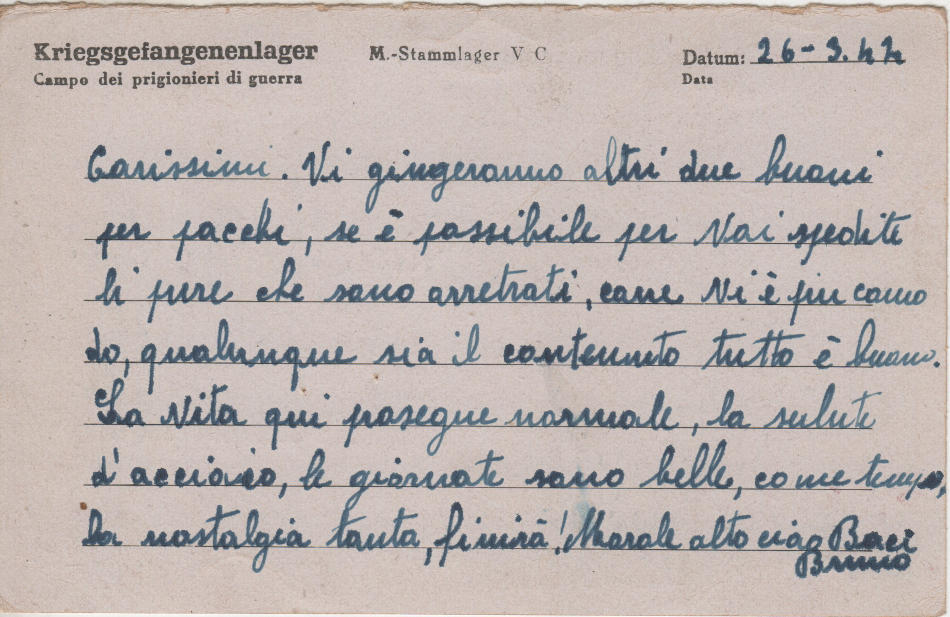 Kriegsgefangenenlager M.-Stammlager V C Datum: 26-3.44
Campo dei prigionieri di guerra Data
Carissimi. Vi giungeranno altri due buoni
per pacchi, se è possibile per Voi spedite
li pure che sono arretrati, come Vi è piu como
do, qualunque sia il contenuto tutto è buono.
La Vita qui prosegue normale, la salute
d'acciaio, le giornate sono belle, come tempo,
la nostalgia tanta, finirà! Morale alto ciao Baci
Bruno